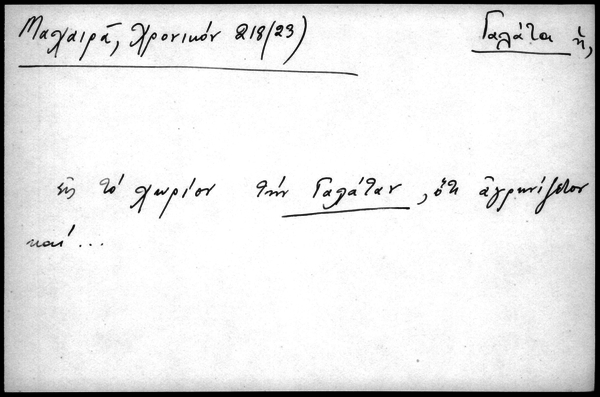 Μαχαιρᾶ, Χρονικόν 218/23) Γαλάτα ἡ,
εἰς τό χωρίον τήν Γαλάταν, ὅτι ἀγρωνίζετον
καί...